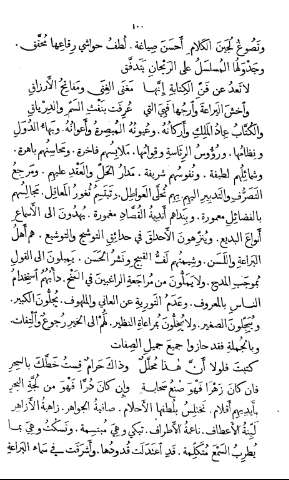 ١٠٠
وتصوغ لجين الكلام. أحسن صياغة. لطف حواشي رقاعها محقق.
وجدولها المسلسل على الريحان يتدفق
لا تعد عن فن الكتابة إنها * مغنى الغنى ومفاتح الأرزاق
وأخش اليراعة وأرجها فهي التي * عرفت بنفث السم والدرياق
والكتاب عماد الملك وأركانه. وعيونه المبصرة وأعوانه. وبهاء الدول
ونظامها. ورؤوس الرئاسة وقوامها. ملابسهم فاخرة. ومحاسنهم باهرة.
وشمائلهم لطيفة. ونفوسهم شريفة. مدار الحل والعقد عليهم. ومرجع
التصرف والتدبير إليهم. بهم تحلى العواطل. وتبتسم ثغور المعاقل. مجالسهم
بالفضائل معمورة. وبنداهم أندية القصاد مغمورة. يهدون الى الأسماع
أنواع البديع. وينزهون الأحداق في حدائق التوشيح والتوشيع. هم أهل
البراعة واللسن. وشيمتهم لف القبيح ونشر الحسن. يميلون الى القول
بموجب المدح. ولا يملون من مراجعة الراغبين في المنح. دأبهم استخدام
الناس بالمعروف. وعدم التورية عن العاني والملهوف. يجلون الكبير.
ويبجلون الصغير. ولا يخلون بمراعاة النظير. لهم الى الخير رجوع والتفات.
وبالجملة فقد حازوا جميع جميل الصفات
كتبت فلولا أن هذا محلل * وذاك حرام قست خطك بالسحر
فان كان زهرا فهو صنع سحابة * وإن كان درا فهو من لجة البحر
بأيديهم أقلام. تختلس بلطفها الأحلام. صافية الجواهر. زاهية الأزاهر
لينة الأعطاف. ناعمة الأطراف. تبكي وهي مبتسمة. وتسكت وهي بما
يطرب السمع متكلمة. قد اعتدلت قدودها. وأشرقت في سماء البراعة